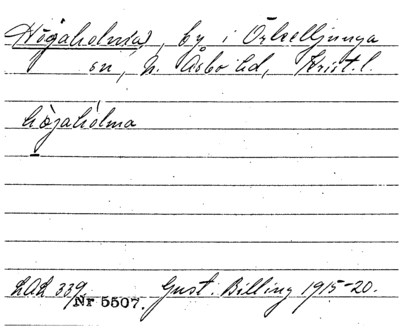 Högaholma(s), by i Örkelljunga
sn, N. Åsbo hd, Krist. l.
högahólma
LAL 339. Nr 5507. Gust. Billing 1915-20.